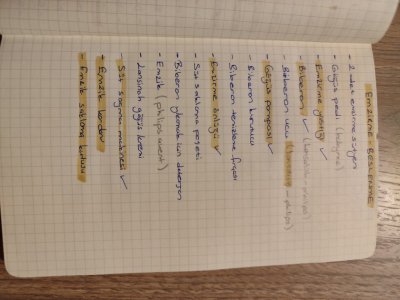 EMZİRME - BESLENME
- 2 adet emzirme sütyeni
- Göğüs pedi (babyjem)
- Emzirme yastığı ✓
- Biberon ✓
- Biberon ucu (lansinoh - philips)
- Göğüs pompası ✓
- Biberon kurutucu
- Biberon temizleme fırçası
- Emzirme önlüğü ✓
- Süt saklama poşeti
- Biberon yıkamak için deterjan
- Emzik (philips avent)
- Lansinoh göğüs kremi
- Süt sağma makinesi ✓
- Emzik bandı
- Emzik saklama kutusu